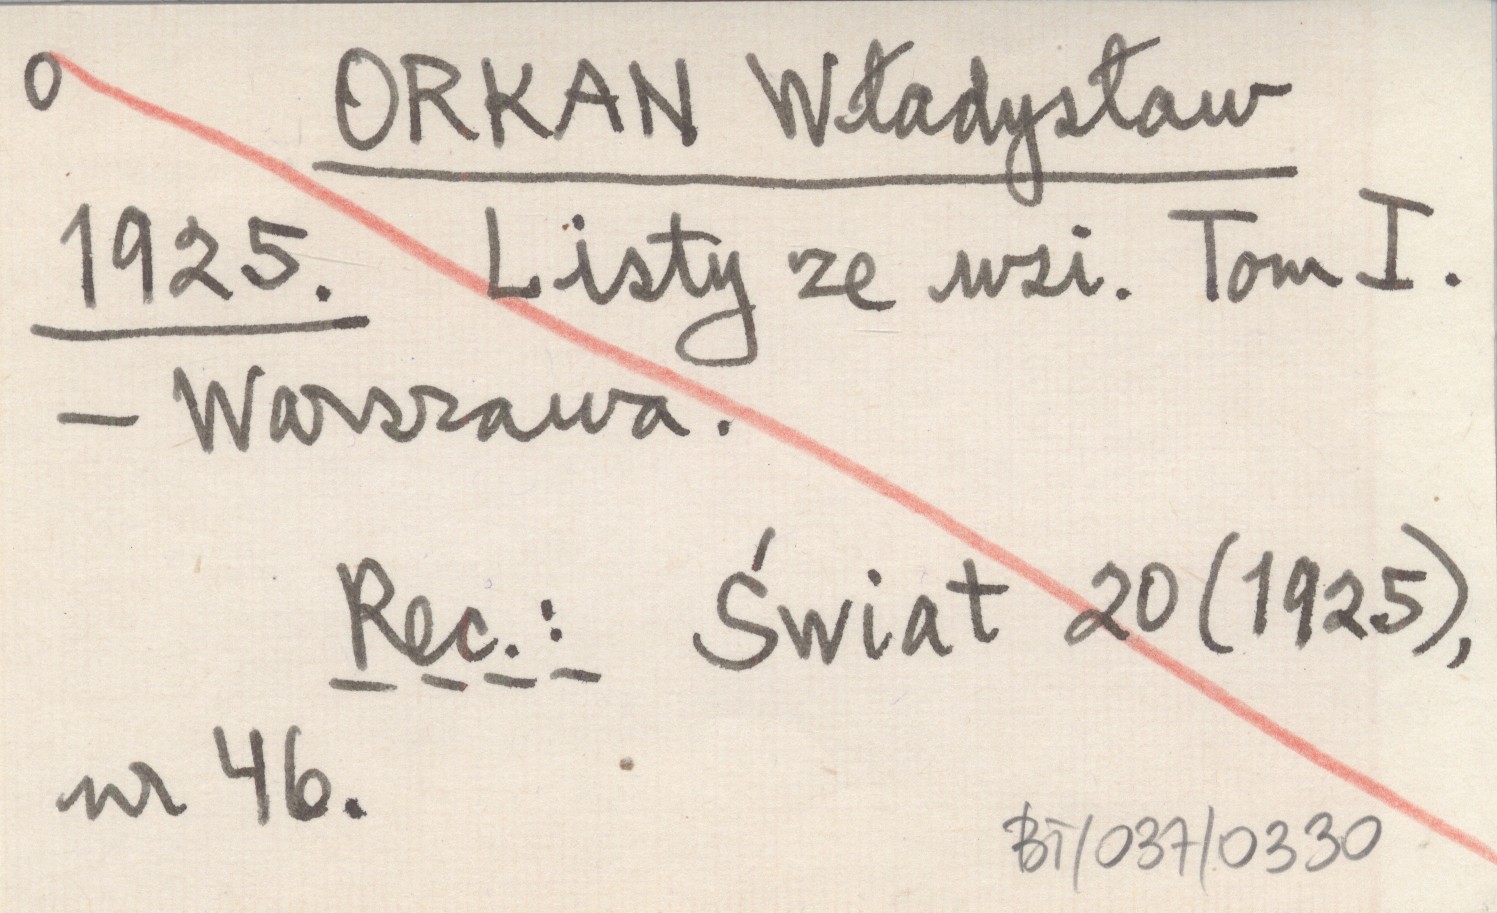 O ORKAN Władysław
1925. Listy ze wsi. Tom I.
– Warszawa.
Rec.: Świat 20 (1925),
nr 46.
BT/037/0330